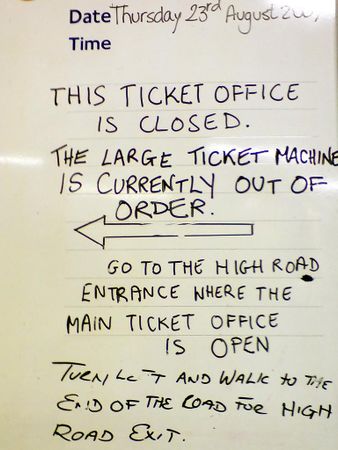 Date Thursday 23rd August 2007
Time
THIS TICKET OFFICE
IS CLOSED.
THE LARGE TICKET MACHINE
IS CURRENTLY OUT OF
ORDER.
GO TO THE HIGH ROAD
ENTRANCE WHERE THE
MAIN TICKET OFFICE
IS OPEN
TURN LEFT AND WALK TO THE
END OF THE ROAD FOR HIGH
ROAD EXIT.